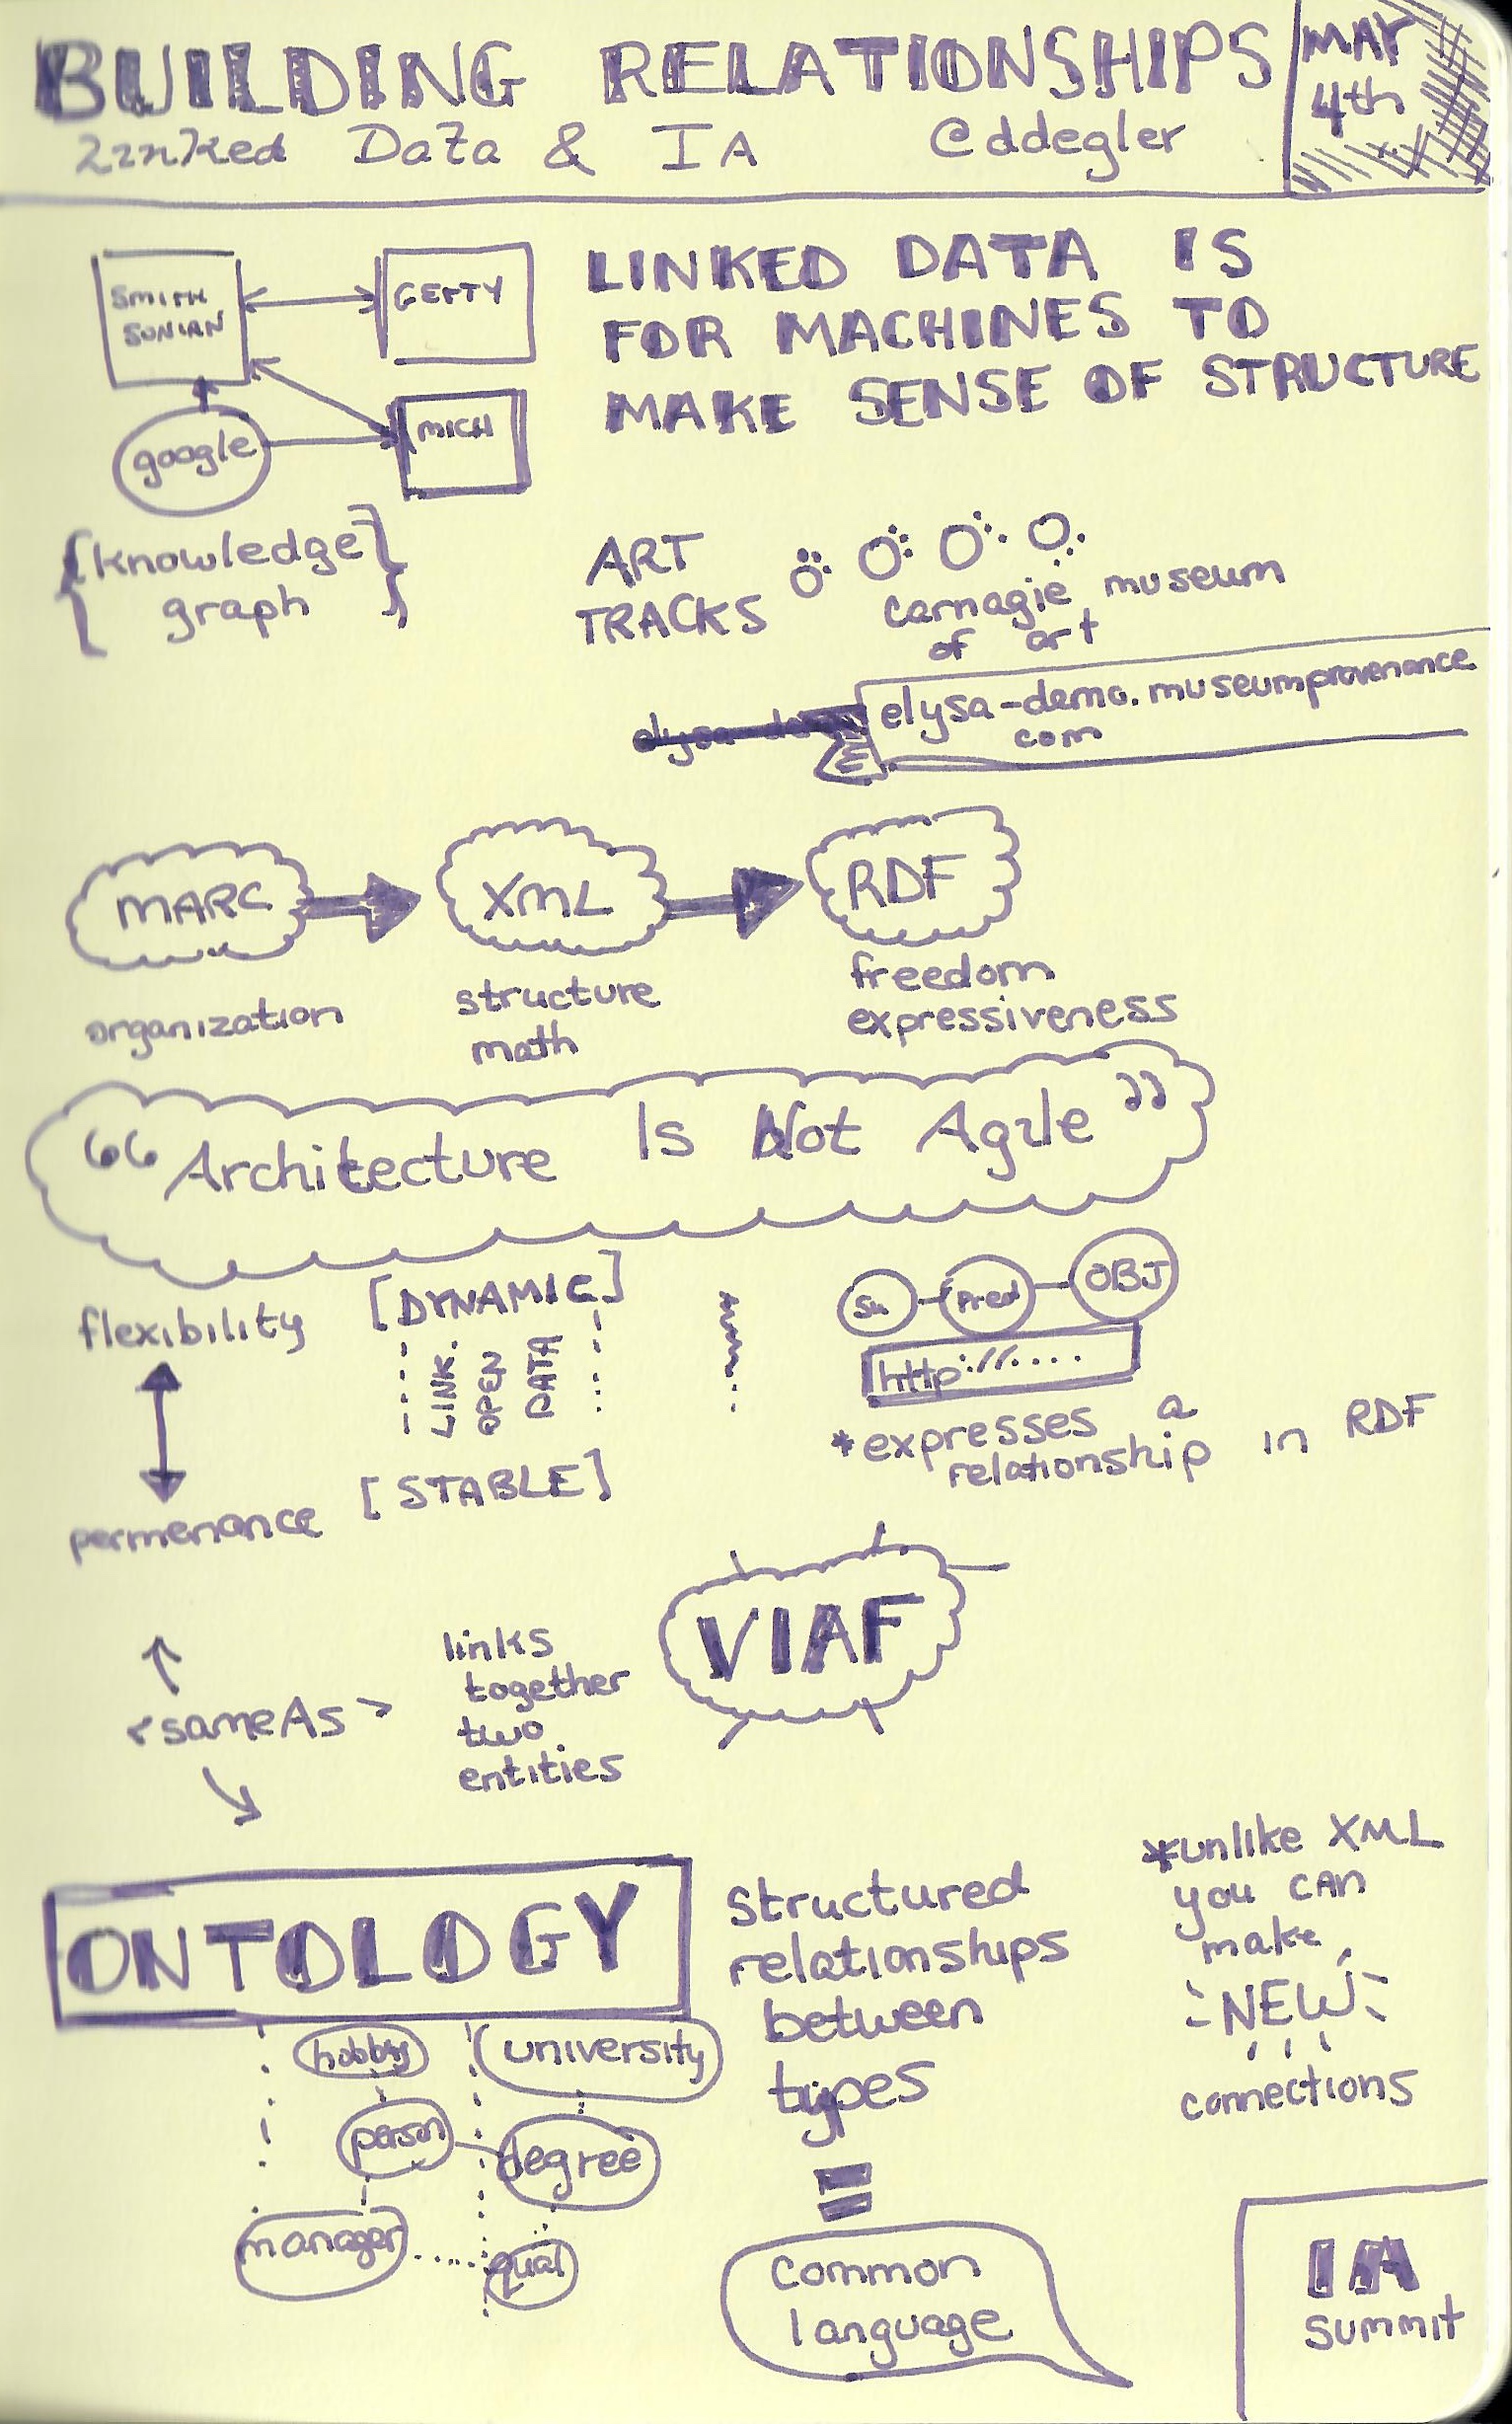 BUILDING RELATIONSHIPS
MAY
4th
Linked Data & IA @ddegler
SMITH
SONIAN
GETTY
google
MICH
LINKED DATA IS
FOR MACHINES TO
MAKE SENSE OF STRUCTURE
{knowledge
graph}
ART
TRACKS
carnagie museum
of art
elysa-demo.museumprovenance
com
MARC
XML
RDF
organization
structure
math
freedom
expressiveness
“Architecture Is Not Agile”
flexibility
permenance
[DYNAMIC]
LINK.
OPEN
DATA
[STABLE]
Su
Pred
OBJ
http://....
*expresses a
relationship in RDF
<sameAs>
links
together
two
entities
VIAF
ONTOLOGY
hobby
university
person
degree
manager
qual
Structured
relationships
between
types
=
common
language
*unlike XML
you CAN
make
NEW
connections
IA
summit